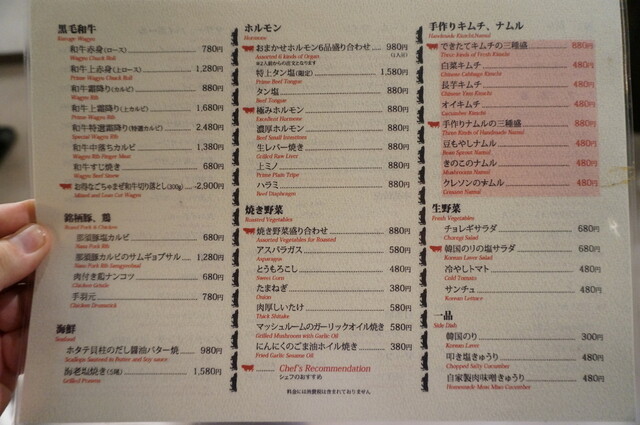 黒毛和牛
Kuroge Wagyu
和牛赤身(ロース) 780円
Wagyu Chuck Roll
和牛上赤身(上ロース) 1,280円
Prime Wagyu Chuck Roll
和牛霜降り(カルビ) 880円
Wagyu Rib
和牛上霜降り(上カルビ) 1,680円
Prime Wagyu Rib
和牛特選霜降り(特選カルビ) 2,480円
Special Wagyu Rib
和牛中落ちカルビ 1,380円
Wagyu Rib Finger Meat
和牛すじ焼き 680円
Wagyu Beef Sinew
お得なごちゃまぜ和牛切り落とし(300g) 2,900円
Mixed and Lean Cut Wagyu
銘柄豚、鶏
Brand Pork & Chicken
那須豚塩カルビ 680円
Nasu Pork Rib
那須豚カルビのサムギョプサル 1,280円
Nasu Pork Rib Samgyeobsal
肉付き膝ナンコツ 680円
Chicken Gristle
手羽元 780円
Chicken Drumstick
海鮮
Seafood
ホタテ貝柱のだし醤油バター焼 980円
Scallops Seasoned in Butter and Soy sauce
海老塩焼き(5尾) 1,580円
Grilled Prawns
ホルモン
Hormone
おまかせホルモン6品盛り合わせ 980円
Assorted 6 kinds of Organ (1人前)
※2人前からの注文となります
特上タン塩(限定) 1,580円
Prime Beef Tongue
タン塩 880円
Beef Tongue
極みホルモン 880円
Excellent Hormone
濃厚ホルモン 880円
Beef Small Intestines
生レバー焼き 880円
Grilled Raw Liver
上ミノ 880円
Prime Plain Tripe
ハラミ 880円
Beef Diaphragm
焼き野菜
Roasted Vegetables
焼き野菜盛り合わせ 880円
Assorted Vegetables for Roasted
アスパラガス 580円
Asparagus
とうもろこし 480円
Sweet Corn
たまねぎ 380円
Onion
肉厚しいたけ 580円
Thick Shitake
マッシュルームのガーリックオイル焼き 580円
Grilled Mushroom with Garlic Oil
にんにくのごま油ホイル焼き 380円
Fried Garlic Sesame Oil
Chef's Recommendation
シェフのおすすめ
料金には消費税は含まれておりません
手作りキムチ、ナムル
Handmade Kimchi, Namul
できたてキムチの三種盛 880円
Three Kinds of Fresh Kimchi
白菜キムチ 480円
Chinese Cabbage Kimchi
長芋キムチ 480円
Chinese Yam Kimchi
オイキムチ 480円
Cucumber Kimchi
手作りナムルの三種盛 880円
Three Kinds of Handmade Namul
豆もやしナムル 480円
Bean Sprout Namul
きのこのナムル 480円
Mushroom Namul
クレソンのナムル 480円
Cresson Namul
生野菜
Fresh Vegetables
チョレギサラダ 680円
Choregi Salad
韓国のりの塩サラダ 680円
Korean Laver Salad
冷やしトマト 480円
Cold Tomato
サンチュ 480円
Korean Lettuce
一品
Side Dish
韓国のり 300円
Korean Laver
叩き塩きゅうり 480円
Chopped Salty Cucumber
自家製肉味噌きゅうり 480円
Homemade Meat Miso Cucumber